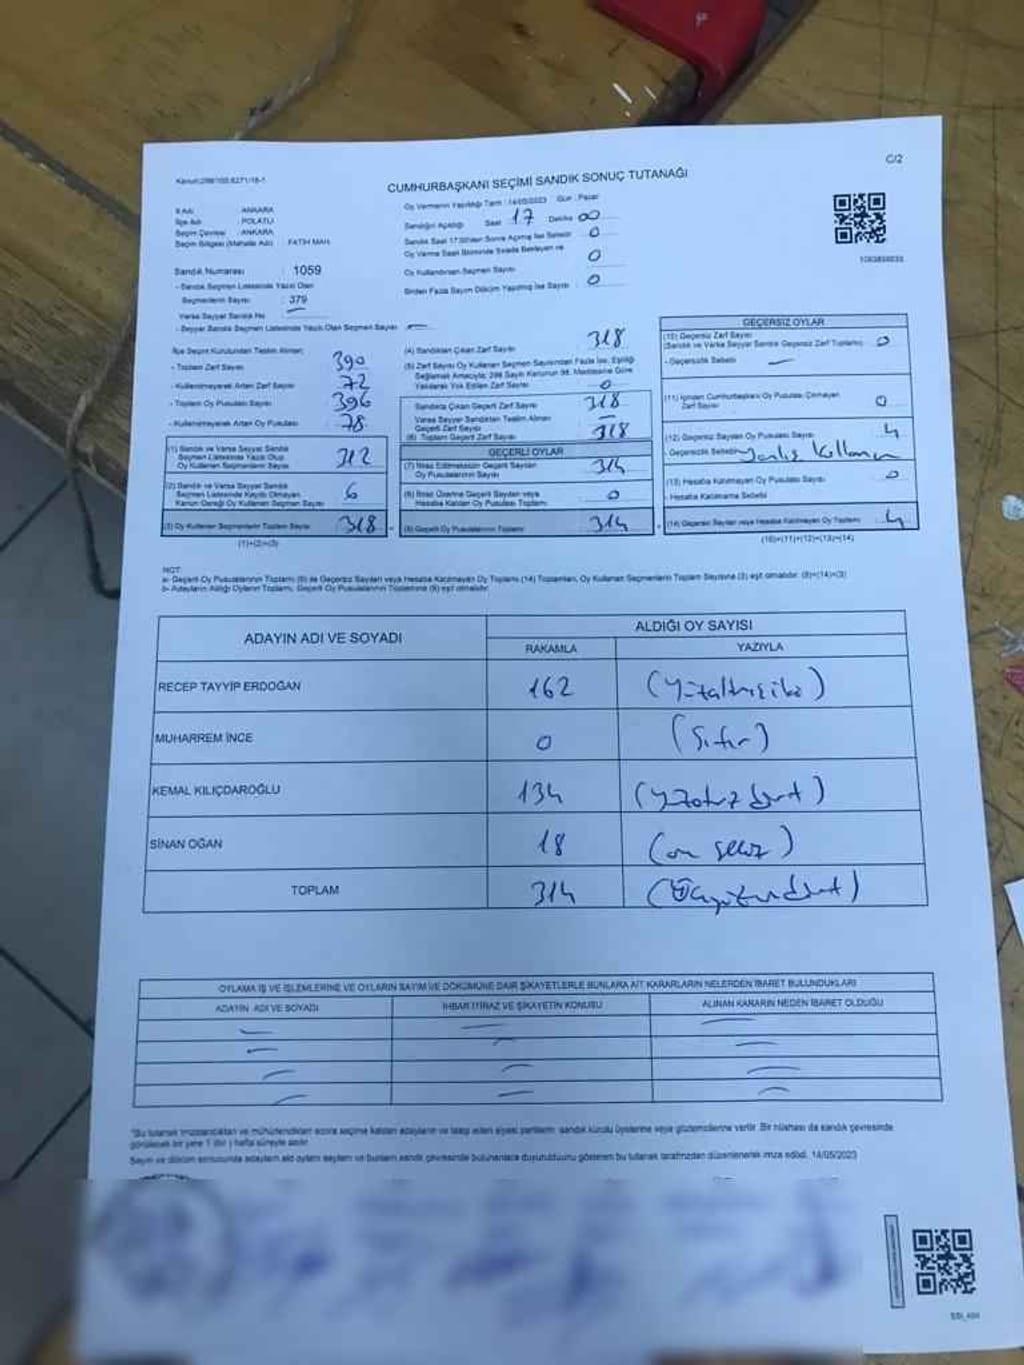 Kanun:298/103,6271/16-1
C/2
CUMHURBAŞKANI SEÇİMİ SANDIK SONUÇ TUTANAĞI
İl Adı : ANKARA
İlçe Adı : POLATLI
Seçim Çevresi : ANKARA
Seçim Bölgesi (Mahalle Adı) : FATİH MAH.
Sandık Numarası : 1059
- Sandık Seçmen Listesinde Yazılı Olan
Seçmenlerin Sayısı : 379
Varsa Seyyar Sandık No
- Seyyar Sandık Seçmen Listesinde Yazılı Olan Seçmen Sayısı
Oy Vermenin Yapıldığı Tarih : 14/05/2023 Gün : Pazar
Sandığın Açıldığı Saat 17 Dakika 00
Sandık Saat 17.00'den Sonra Açılmış İse Sebebi 0
Oy Verme Saati Bitiminde Sırada Bekleyen ve
Oy Kullandırılan Seçmen Sayısı 0
Birden Fazla Sayım Döküm Yapılmış İse Sayısı 0
İlçe Seçim Kurulundan Teslim Alınan;
- Toplam Zarf Sayısı 390
- Kullanılmayarak Artan Zarf Sayısı 72
- Toplam Oy Pusulası Sayısı 396
- Kullanılmayarak Artan Oy Pusulası 78
(1) Sandık ve Varsa Seyyar Sandık
Seçmen Listesinde Yazılı Olup
Oy Kullanan Seçmenlerin Sayısı 312
(2) Sandık ve Varsa Seyyar Sandık
Seçmen Listesinde Kaydı Olmayan
Kanun Gereği Oy Kullanan Seçmen Sayısı 6
(3) Oy Kullanan Seçmenlerin Toplam Sayısı 318
(1)+(2)=(3)
(4) Sandıktan Çıkan Zarf Sayısı 318
(5) Zarf Sayısı Oy Kullanan Seçmen Sayısından Fazla İse, Eşitliği
Sağlamak Amacıyla, 298 Sayılı Kanunun 98. Maddesine Göre
Yakılarak Yok Edilen Zarf Sayısı 0
Sandıkta Çıkan Geçerli Zarf Sayısı 318
Varsa Seyyar Sandıktan Teslim Alınan
Geçerli Zarf Sayısı
(6) Toplam Geçerli Zarf Sayısı 318
GEÇERLİ OYLAR
(7) İtiraz Edilmeksizin Geçerli Sayılan
Oy Pusulalarının Sayısı 314
(8) İtiraz Üzerine Geçerli Sayılan veya
Hesaba Katılan Oy Pusulası Toplamı 0
(9) Geçerli Oy Pusulalarının Toplamı 314
GEÇERSİZ OYLAR
(10) Geçersiz Zarf Sayısı
(Sandık ve Varsa Seyyar Sandık Geçersiz Zarf Toplamı) 0
- Geçersizlik Sebebi
(11) İçinden Cumhurbaşkanı Oy Pusulası Çıkmayan
Zarf Sayısı 0
(12) Geçersiz Sayılan Oy Pusulası Sayısı 4
- Geçersizlik Sebebi Yanlış Kullanım
(13) Hesaba Katılmayan Oy Pusulası Sayısı 0
- Hesaba Katılmama Sebebi
(14) Geçersiz Sayılan veya Hesaba Katılmayan Oy Toplamı 4
(10)+(11)+(12)+(13)=(14)
NOT:
a- Geçerli Oy Pusulalarının Toplamı (9) ile Geçersiz Sayılan veya Hesaba Katılmayan Oy Toplamı (14) Toplamları, Oy Kullanan Seçmenlerin Toplam Sayısına (3) eşit olmalıdır. (9)+(14)=(3)
b- Adayların Aldığı Oyların Toplamı, Geçerli Oy Pusulalarının Toplamına (9) eşit olmalıdır.
ADAYIN ADI VE SOYADI
ALDIĞI OY SAYISI
RAKAMLA YAZIYLA
RECEP TAYYİP ERDOĞAN 162 (Yüzaltmışiki)
MUHARREM İNCE 0 (Sıfır)
KEMAL KILIÇDAROĞLU 134 (Yüzotuz dört)
SİNAN OĞAN 18 (on sekiz)
TOPLAM 314 (Üçyüzondört)
OYLAMA İŞ VE İŞLEMLERİNE VE OYLARIN SAYIM VE DÖKÜMÜNE DAİR ŞİKAYETLERLE BUNLARA AİT KARARLARIN NELERDEN İBARET BULUNDUKLARI
ADAYIN ADI VE SOYADI İHBAR İTİRAZ VE ŞİKAYETİN KONUSU ALINAN KARARIN NEDEN İBARET OLDUĞU
*Bu tutanak imzalandıktan ve mühürlendikten sonra seçime katılan adayların ve talep eden siyasi partilerin sandık kurulu üyelerine veya gözlemcilerine verilir. Bir nüshası da sandık çevresinde
görülecek bir yere 1 (bir) hafta süreyle asılır.
Sayım ve döküm sonucunda adayların aldığı oyların sayıların ve bunların sandık çevresinde bulunanlara duyurulduğunu gösteren bu tutanak tarafımızdan düzenlenerek imza edildi. 14/05/2023